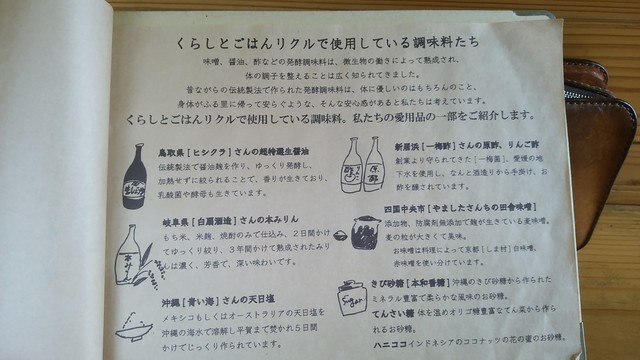 くらしとごはんリクルで使用している調味料たち
味噌、醤油、酢などの発酵調味料は、微生物の働きによって熟成され、
体の調子を整えることは広く知られてきました。
昔ながらの伝統製法で作られた発酵調味料は、体に優しいのはもちろんのこと、
身体がふる里に帰って安らぐような、そんな安心感があると私たちは考えています。
くらしとごはんリクルで使用している調味料。私たちの愛用品の一部をご紹介します。
鳥取県［ヒシクラ］さんの超特選生醤油
伝統製法で醤油麹を作り、ゆっくり発酵し、
加熱せずに絞られることで、香りが生きており、
乳酸菌や酵母も生きています。
岐阜県［白扇酒造］さんの本みりん
もち米、米麹、焼酎のみで仕込み、２日間かけ
てゆっくり絞り、３年間かけて熟成されたみり
んは濃く、芳香で、深い味わいです。
本みりん
沖縄［青い海］さんの天日塩
メキシコもしくはオーストラリアの天日塩を
沖縄の海水で溶解し平賀まで焚かれ５日間
かけてじっくり作られています。
新居浜［一梅酢］さんの原酢、りんご酢
創業より守られてきた［一梅菌］、愛媛の地
下水を使用し、なんと酒造りから手掛け、お
酢を醸されています。
四国中央市［やましたさんちの田舎味噌］
添加物、防腐剤無添加で麹が生きている麦味噌。
麦の粒が大きくて美味。
お味噌は料理によって京都［しま村］白味噌、
赤味噌を使い分けています。
きび砂糖［本和香糖］沖縄のきび砂糖から作られた
ミネラル豊富で柔らかな風味のお砂糖。
てんさい糖 体を温めオリゴ糖豊富なてん菜から作
られるお砂糖。
ハニココ インドネシアのココナッツの花の蜜のお砂糖。
Sugar